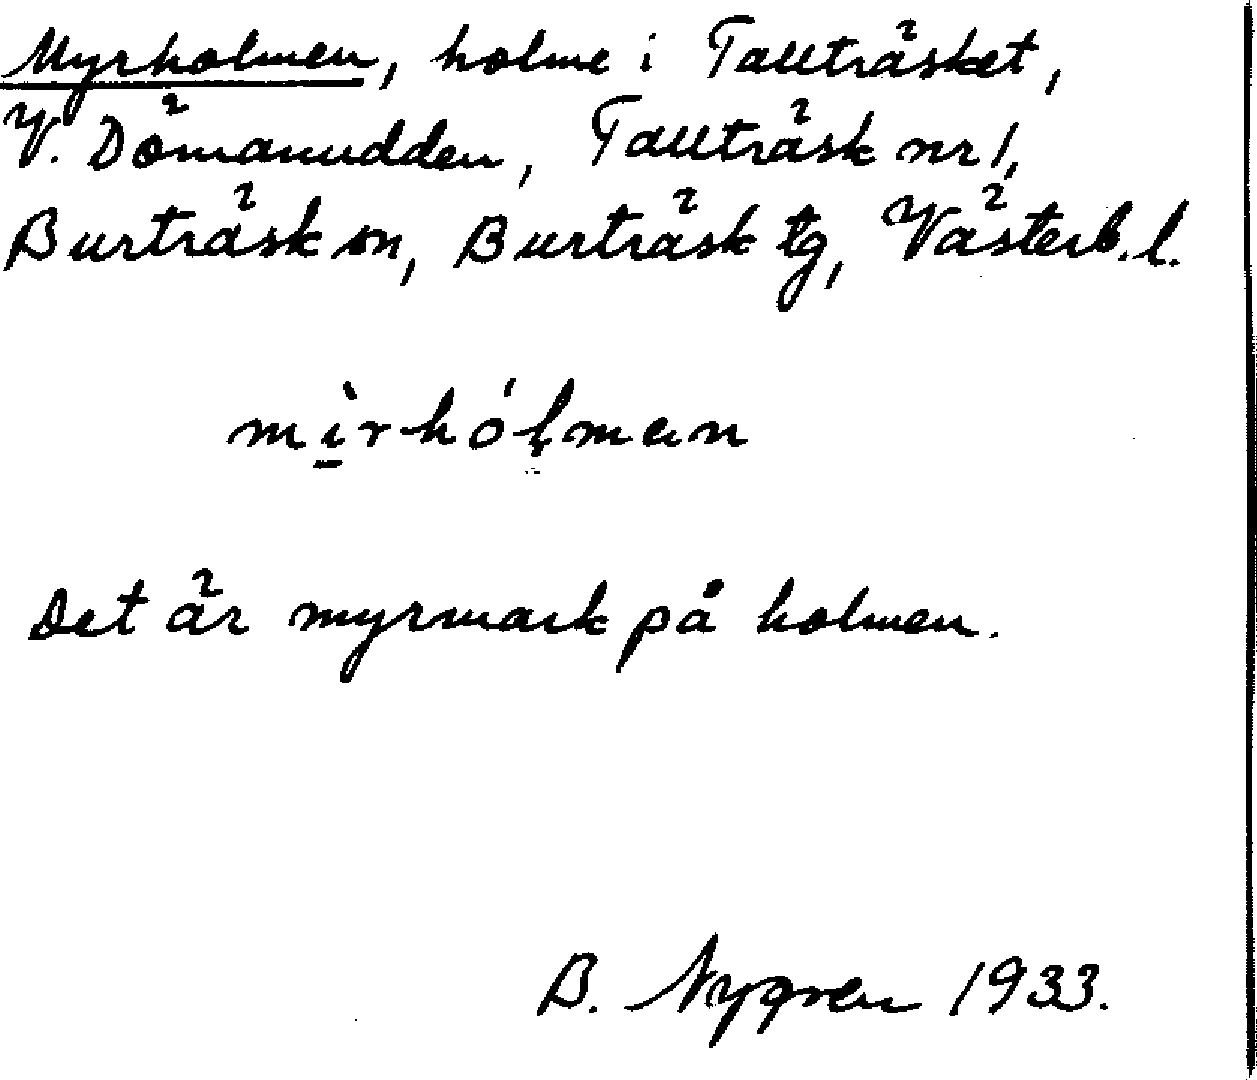 Myrholmen, holme i Tallträsket,
V. Dömanudden, Tallträsk nr 1,
Burträsk sn, Burträsk tg, Västerb. l.
mì̱rhóḷmen
Det är myrmark på holmen.
B. Nygren 1933.